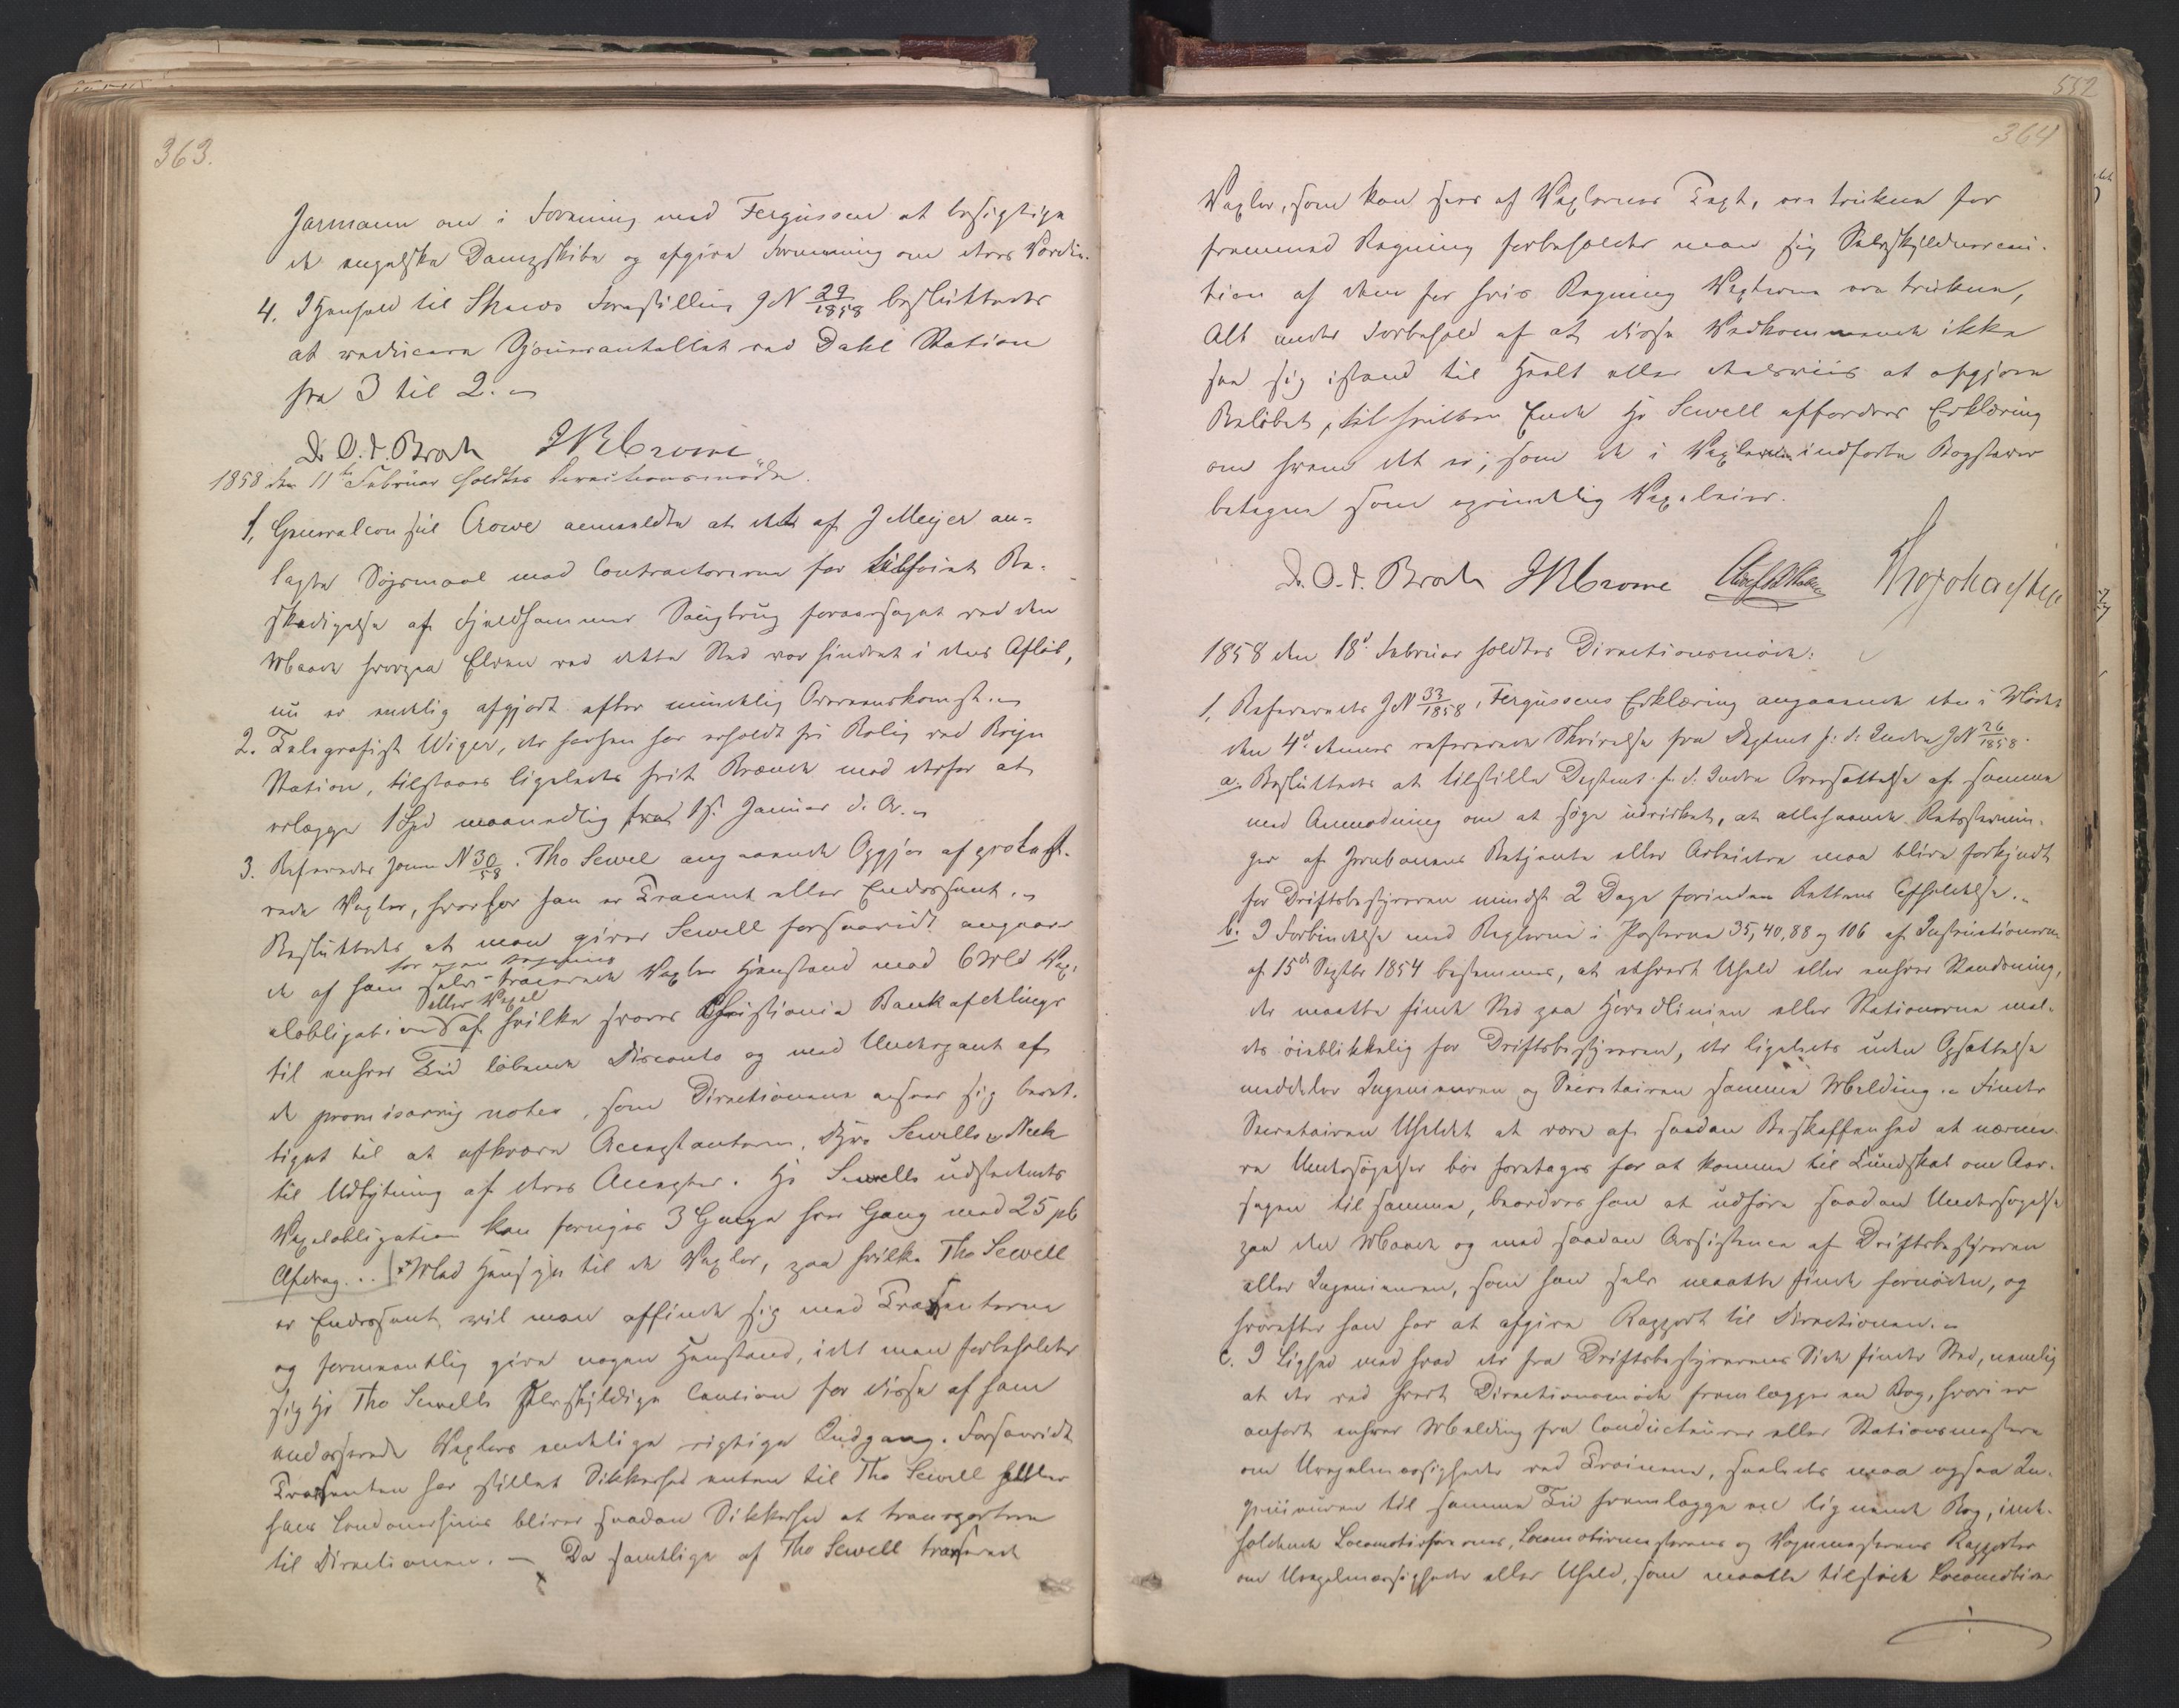 363.
Jarmann om i Forening med Fergusson at besigtige
de engelske Dampskibe og afgive Formening om deres Værdie.
4. I Henhold til Skaws Forestilling JN 29/1858 besluttedes
at reducere Sjouerantallet ved Dahl Station
fra 3 til 2.
Dr O. J. Broch JRCrowe
1858 den 11te Februar holdtes Directionsmøde.
1. Generalconsul Crowe anmeldte at det af J Meyer an-
lagte Søgsmaal mod Contractorerne for tilføiet Be-
skadigelse af Fjeldhammer Saugbrug foraarsaget ved den
Maade hvorpaa Elven ved dette Sted var hindret i dens Afløb,
nu er endelig afgjort efter mindelig Overeenskomst.
2. Telegrafist Wiger, der forhen har erholdt fri Bolig ved Bryn
Station, tilstaaes ligeledes frit Brænde mod derfor at
erlægge 1 Spd maanedlig fra 1st Januar d. A.
3. Refereredes Journ N 30/58. Tho Sewel angaaende Opgjør af protest-
erede Vexler, hvorfor han er Tracent eller Endossent.
Besluttedes at man giver Sewell forsaavidt angaaer
for egen Regning
de af ham selv tracerede Vexler Henstand mod 6 Mds Vex-
eller Vexel
elobligation af hvilke svares Christiania Bankafdelings
til enhver Tid løbende Disconto og med Underpant af
de promisorrig notes, som Directionen anseer sig beret-
tiget til at afkræve Acceptanterne, Dhrr Sewells & Neck
til Udbytning af deres Accepter. Hr Sewells udstedende
Vexelobligation kan fornyes 3 Gange hver Gang med 25 pC
Afdrag. .. Med Hensyn til de Vexler, paa hvilke Tho Sewell
er Endossent, vil man affinde sig med Trassenterne
og formeentlig give nogen Henstand, idet man forbeholder
sig Hr Tho Sewells selvskyldige Caution for disse af ham
endosserede Vexlers endelige rigtige Indgang. Forsaavidt
Trassenten har stillet Sikkerhed enten til Tho Sewell eller
hans Condomersinis bliver saadan Sikkerhed at transportere
til Directionen. — Da samtlige af Tho Sewell trasserede
552
364
Vexler, som kan sees af Vexlernes Text, ere trukne for
fremmed Regning forbeholder man sig Selvskyldnercau-
tion af dem for hvis Regning Vexlerne ere trukne,
Alt under Forbehold af at disse Vedkommende ikke
see sig istand til Heelt eller deelsviis at afgjøre
Beløbet, til hvilken Ende Hr Sewell affordres Erklæring
om hvem det er, som de i Vexlerne indførte Bogstaver
betegne som egentlig Vexeleier.
Dr. O. J. Broch JRCrowe
1858 den 18d Februar holdtes Directionsmøde:
1. Refereredes JN 33/1858, Fergussons Erklæring angaaende den i Mødet
den 4d dennes refererede Skrivelse fra Deptmt f. d. Indre JN 26/1858.
a. Besluttedes at tilstille Deptmt. f. d. Indre Oversættelse af samme
med Anmodning om at søge udvirket, at allehaande Retsstævnin-
ger af Jernbanens Betjente eller Arbeidere maa blive forkyndt
for Driftsbestyreren mindst 2 Dage forinden Rettens Afholdelse.
b. I Forbindelse med Reglerne i Posterne 35, 40, 88 og 106 af Instructionerne
af 15de Septbr 1854 bestemmes, at ethvert Uheld eller enhver Standsning,
der maatte finde Sted paa Hovedlinien eller Stationerne mel-
des øieblikkelig for Driftsbestyreren, der ligeledes uden Opsættelse
meddeler Ingenieuren og Secretairen samme Melding. Finder
Secretairen Uheldet at være af saadan Beskaffenhed at nærme-
re Undersøgelser bør foretages for at komme til Kundskab om Aar-
sagen til samme, beordres han at udføre saadan Undersøgelse
paa den Maade og med saadan Assistence af Driftsbestyreren
eller Ingenieuren, som han selv maatte finde fornøden, og
hvorefter han har at afgive Rapport til Directionen.
c. I Lighed med hvad der fra Driftsbestyrerens Side finder Sted, nemlig
at der ved hvert Directionsmøde fremlægges en Bog, hvori er
anført enhver Melding fra Conducteurer eller Stationsmestere
om Uregelmæssigheder ved Trainene, saaledes maa ogsaa In-
genieuren til samme Tid fremlægge en lignende Bog, inde-
holdende Locomotivførernes, Locomotivmesterens og Vognmesterens Rapporter
om Uregelmæssigheder eller Uheld, som maatte tilstøde Locomotiver